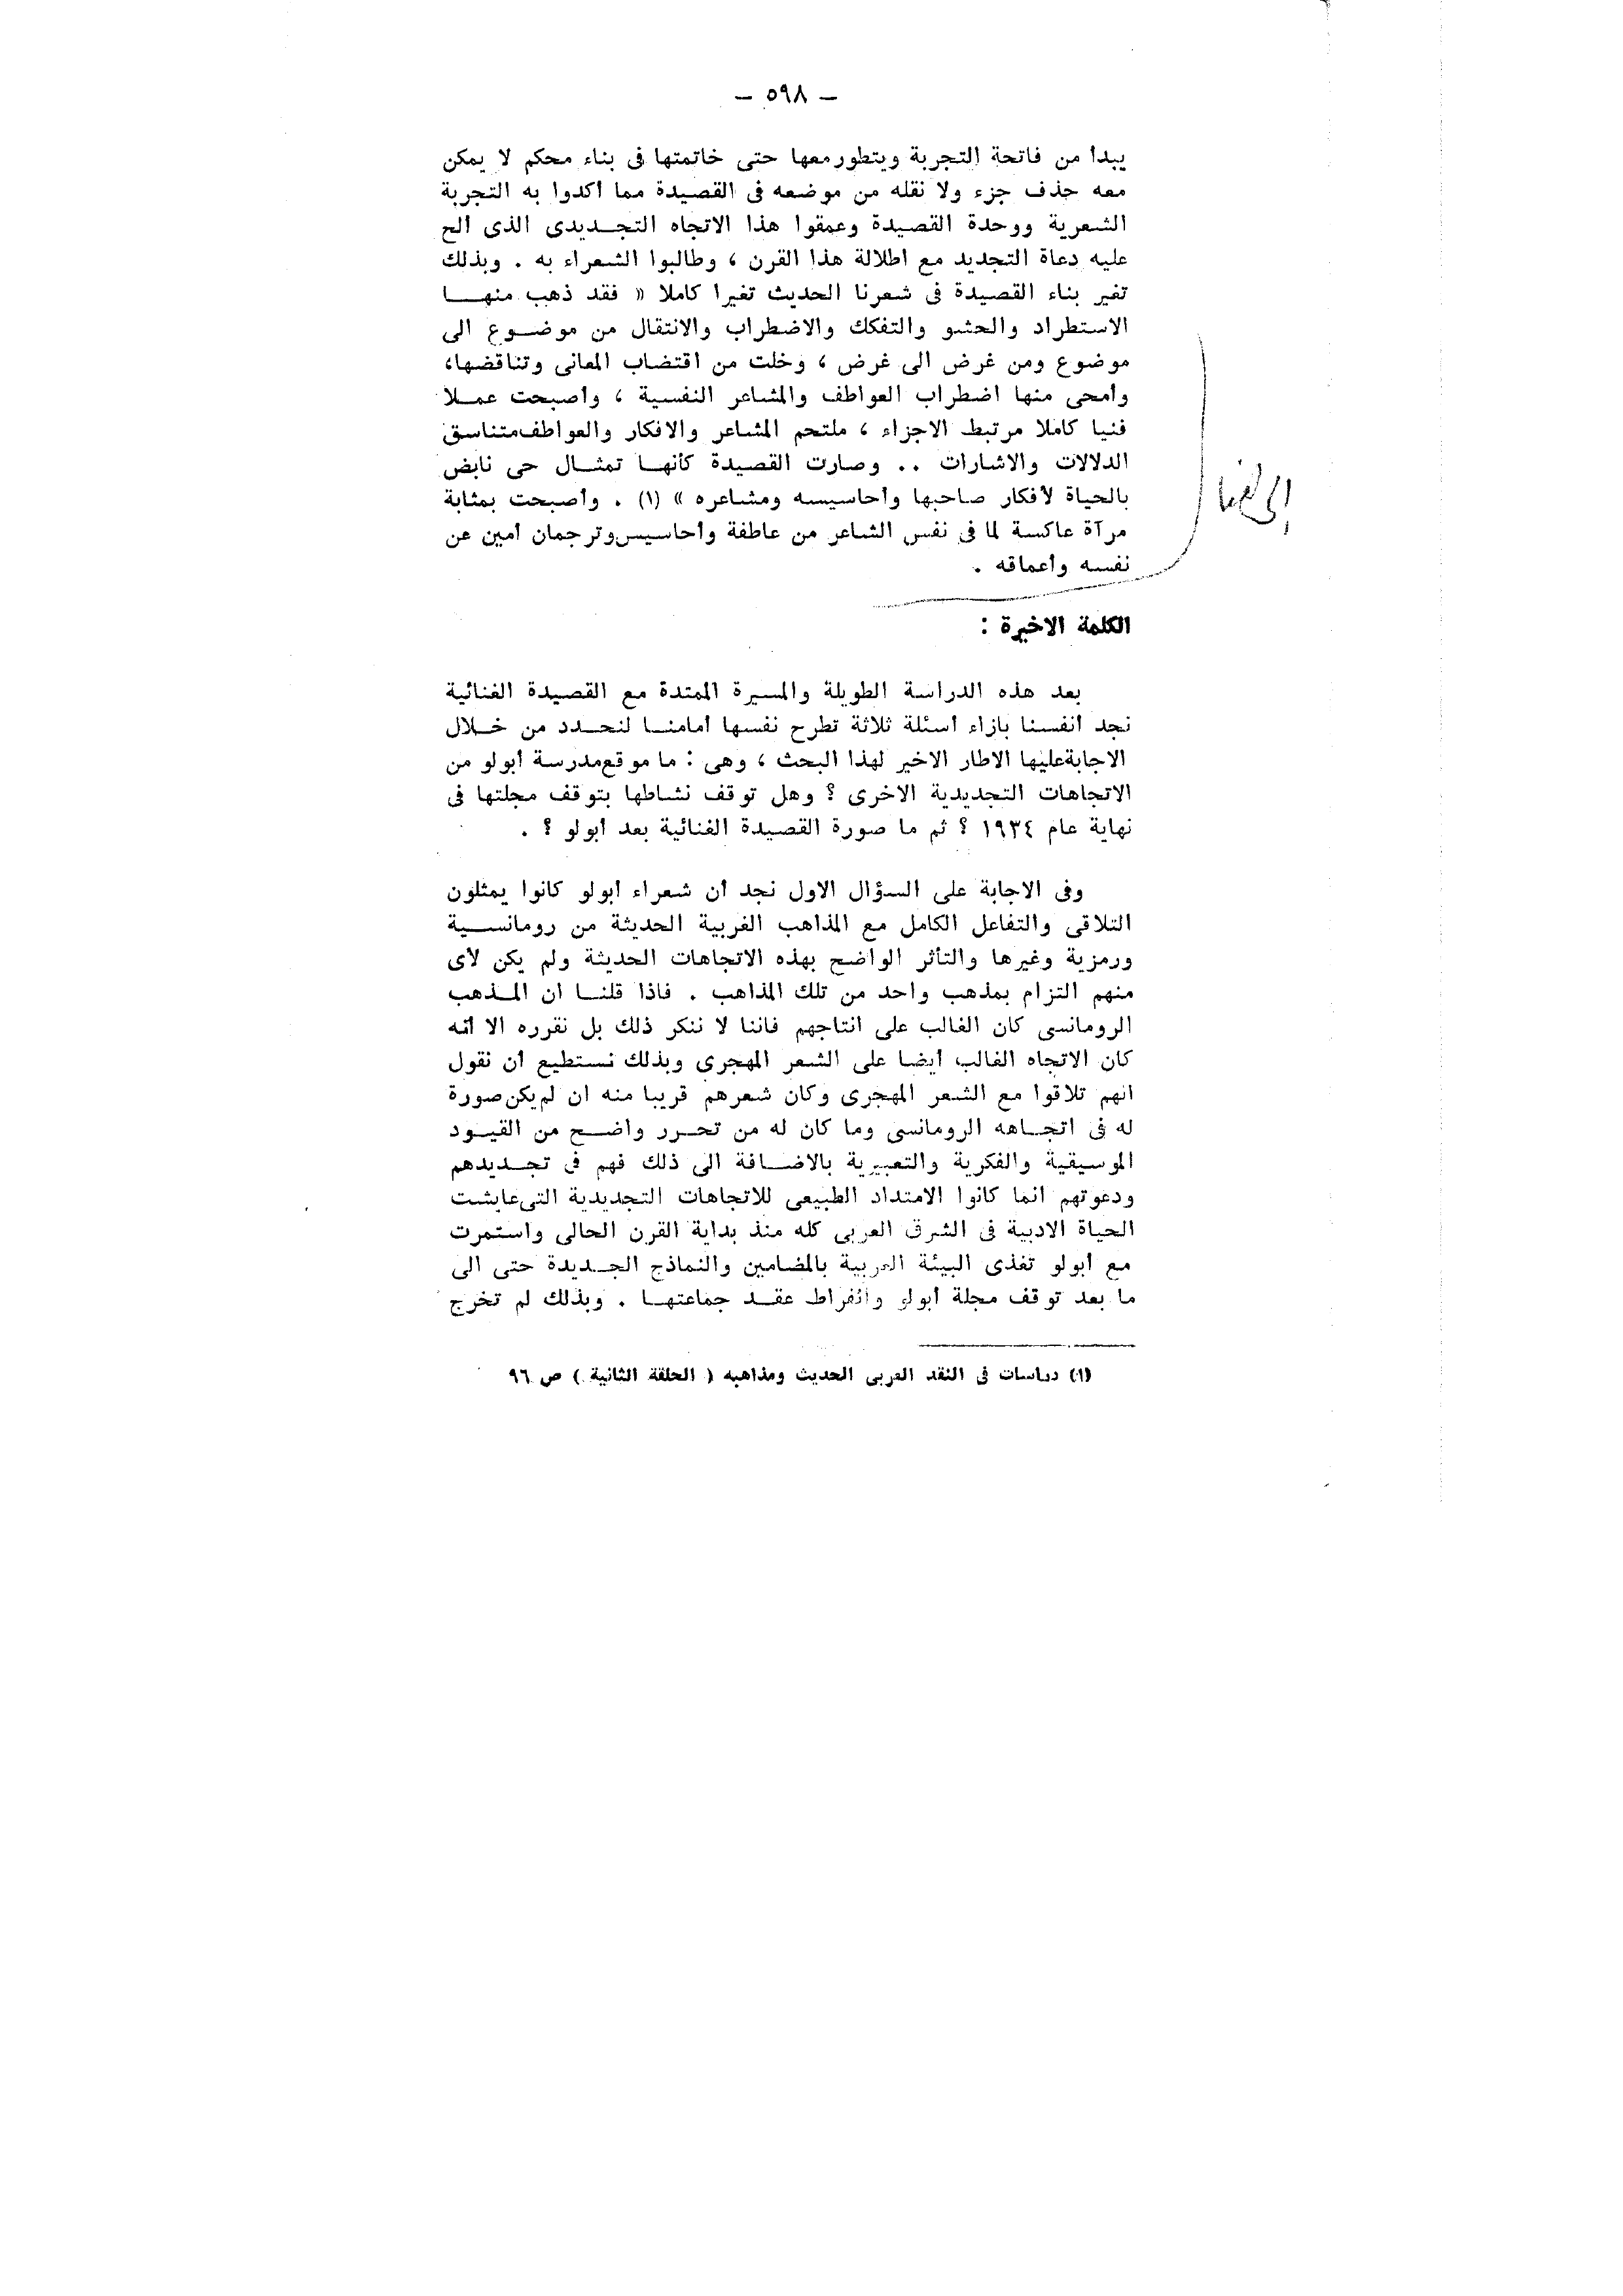 — ٥٩٨ —
يبدأ من فاتحة التجربة ويتطور معها حتى خاتمتها فى بناء محكم لا يمكن
معه حذف جزء ولا نقله من موضعه فى القصيدة مما أكدوا به التجربة
الشعرية ووحدة القصيدة وعمقوا هذا الاتجاه التجـديدى الذى ألح
عليه دعاة التجديد مع اطلالة هذا القرن ، وطالبوا الشعراء به . وبذلك
تغير بناء القصيدة فى شعرنا الحديث تغيرا كاملا « فقد ذهب منهـــا
الاستطراد والحشو والتفكك والاضطراب والانتقال من موضـوع الى
موضوع ومن غرض الى غرض ، وخلت من اقتضاب المعانى وتناقضها،
وأمحى منها اضطراب العواطف والمشاعر النفسية ، وأصبحت عمـلا
فنيا كاملا مرتبط الاجزاء ، ملتحم المشاعر والافكار والعواطف متناسق
الدلالات والاشارات .. وصارت القصيدة كأنهـا تمثـال حى نابض
بالحياة لأفكار صاحبها وأحاسيسه ومشاعره » (١) . وأصبحت بمثابة
مرآة عاكسة لما فى نفس الشاعر من عاطفة وأحاسيس وترجمان أمين عن
نفسه وأعماقه .
الكلمة الاخيرة :
بعد هذه الدراسة الطويلة والمسيرة الممتدة مع القصيدة الغنائية
نجد أنفسنا بازاء أسئلة ثلاثة تطرح نفسها أمامنـا لنحـدد من خـلال
الاجابة عليها الاطار الاخير لهذا البحث ، وهى : ما موقع مدرسة أبولو من
الاتجاهات التجديدية الاخرى ؟ وهل توقف نشاطها بتوقف مجلتها فى
نهاية عام ١٩٣٤ ؟ ثم ما صورة القصيدة الغنائية بعد أبولو ؟ .
وفى الاجابة على السؤال الاول نجد أن شعراء أبولو كانوا يمثلون
التلاقى والتفاعل الكامل مع المذاهب الغربية الحديثة من رومانسـية
ورمزية وغيرها والتأثر الواضح بهذه الاتجاهات الحديثة ولم يكن لأى
منهم التزام بمذهب واحد من تلك المذاهب . فاذا قلنـا ان المـذهب
الرومانسى كان الغالب على انتاجهم فاننا لا ننكر ذلك بل نقرره الا أنه
كان الاتجاه الغالب أيضا على الشعر المهجرى وبذلك نستطيع أن نقول
انهم تلاقوا مع الشعر المهجرى وكان شعرهم قريبا منه ان لم يكن صورة
له فى اتجـاهه الرومانسى وما كان له من تحـرر واضـح من القيـود
الموسيقية والفكرية والتعبيرية بالاضـافة الى ذلك فهم فى تجـديدهم
ودعوتهم انما كانوا الامتداد الطبيعى للاتجاهات التجديدية التى عايشت
الحياة الادبية فى الشرق العربى كله منذ بداية القرن الحالى واستمرت
مع أبولو تغذى البيئة العربية بالمضامين والنماذج الجـديدة حتى الى
ما بعد توقف مجلة أبولو وانفراط عقـد جماعتهـا . وبذلك لم تخرج
(١) دراسات فى النقد العربى الحديث ومذاهبه ( الحلقة الثانية ) ص ٩٦